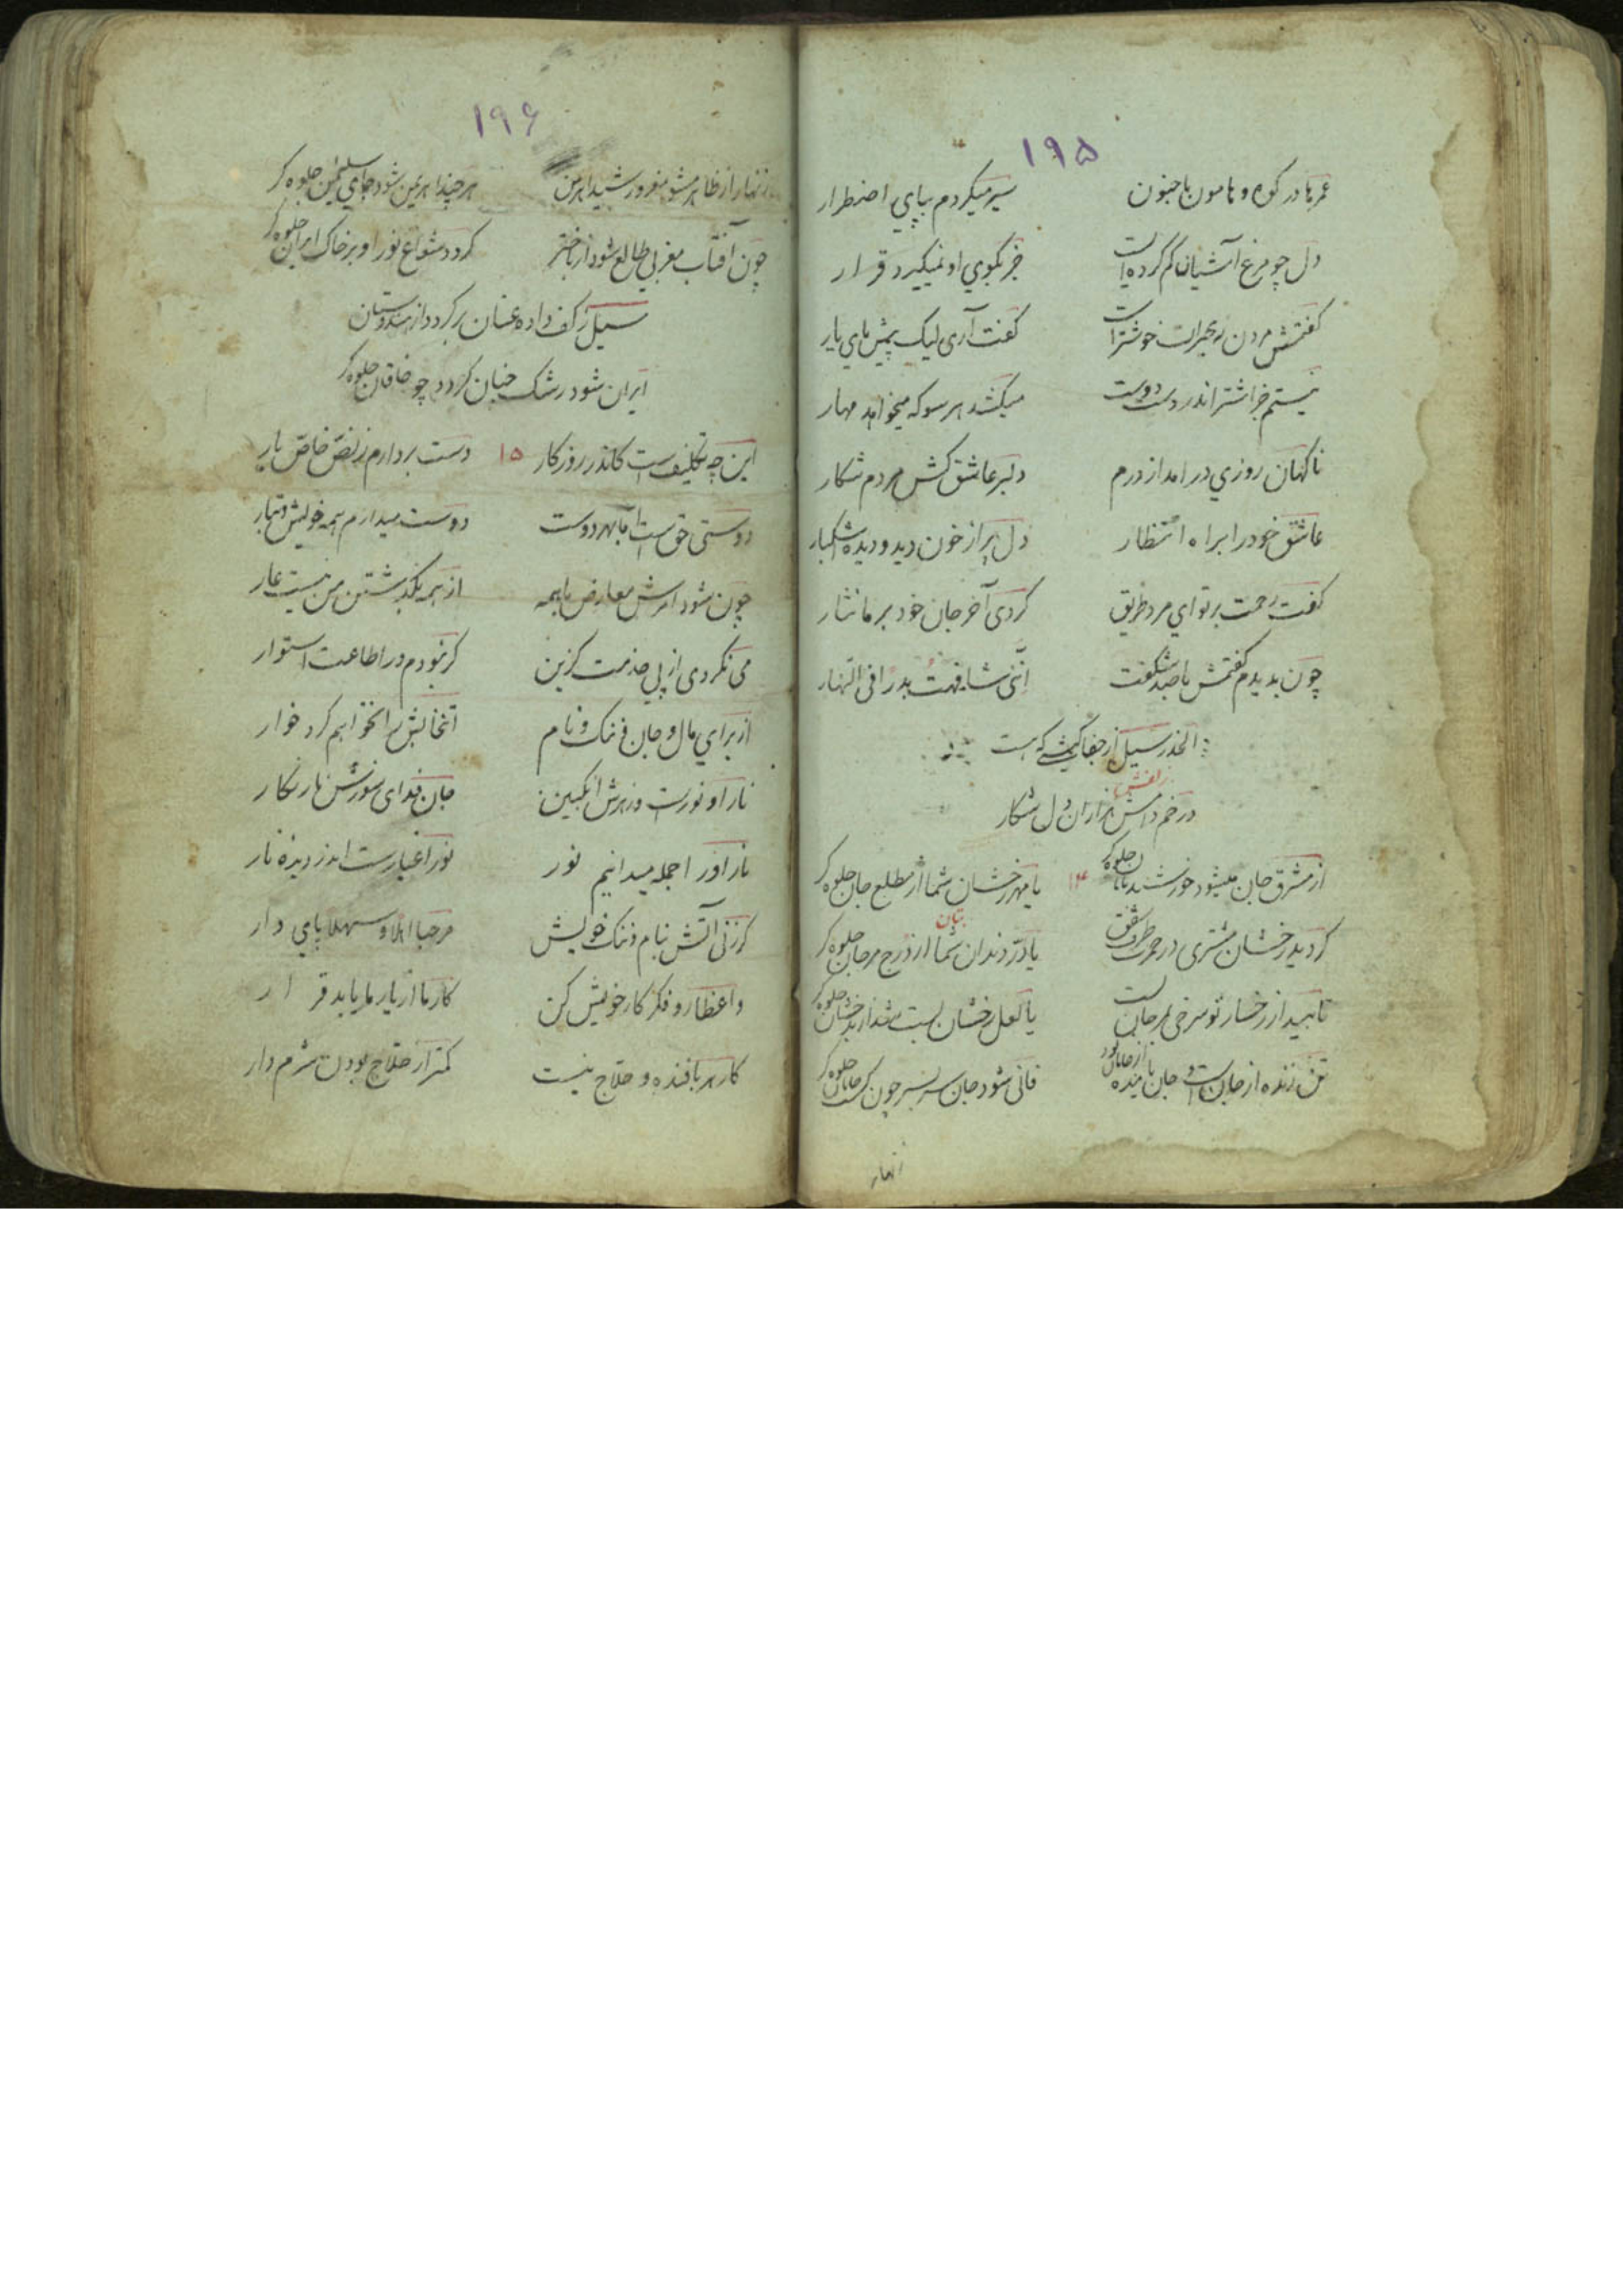 ۱۹۵
عمرها در کوه و هامون با جنون سیر میکردم بپای اضطرار
دل چو مرغ آشیان کم کرده است جز بکوی او نمیگیرد قرار
کفتمش مردن ز هجرانت خوشتر است کفت آری لیک پیش پای یار
نیستم جز اشتر اندر دست دوست میکشد هر سو که میخواهد مهار
ناکهان روزی در امد از درم دلبر عاشق کش مردم شکار
عاشق خود را براه انتظار دل پر از خون دید و دیده اشکبار
کفت رحمت بر تو ای مرد طریق کردی آخر جان خود بر ما نثار
چون بدیدم کفتمش با صد شکفت اننی شافهت بدرا فی النهار
الحذر سیل از جفا کیشی که هست
در خم دامش هزاران دل شکار
زلفش
از مشرق جان میشود خورشید تابان جلوه کر ۱۴ یا مهر رخشان شما از مطلع جان جلوه کر
کردید رخشان مشتری در حمرت طرف شفق یا در دندان شما از درج مرجان جلوه کر
بتان
تابید از رخسار تو سرخی بمرجان است یا لعل رخشان لبت شد از بدخشان جلوه کر
تن زنده از جان است و جان پاینده از جانان بود فانی شود جان سر بسر چون کشت جانان جلوه کر
زنهار
۱۹۶
زنهار از ظاهر مشو مغرور شید اهرمن هر چند اهریمن شود جای سلیمن جلوه کر
چون آفتاب مغربی طالع شود از باختر کردد شعاع نور او بر خاک ایران جلوه کر
سیل ز کف داده عنان بر کردد از هندوستان
ایران شود رشک جنان کردد چو خاقان جلوه کر
این چه تکلیف است کاندر روزکار ۱۵ دست بردارم ز نص خاص یار
دوستی حق است اما بهر دوست دوست میدارم همه خویش و تبار
چون شود امرش معارض با همه از همه بکذشتن من نیست عار
می نکردی از پی خدمت کزین کر نبودم در اطاعت استوار
از برای مال و جان و ننک و نام انتخابش را نخواهم کرد خوار
نار او نور است و زهرش انکبین جان فدای سوزش نار نکار
نار او را جمله میدانیم نور نور اغیار است اندر دیده نار
کر زنی آتش بنام و ننک خویش مرحبا اهلا و سهلا پای دار
واعظا رو فکر کار خویش کن کار ما از یار ما یابد قرار
کار هر بافنده و حلاج نیست کمتر از حلاج بودن شرم دار